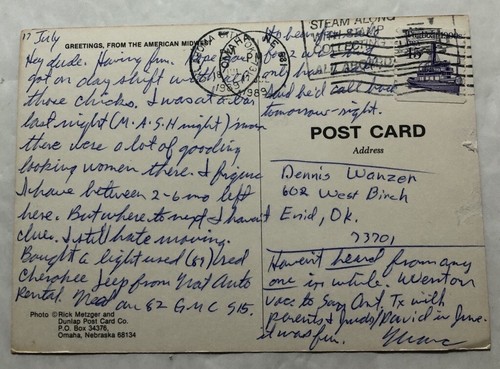 17 July
GREETINGS, FROM THE AMERICAN MIDWEST
Hey dude. Having fun. Hope you
got on day shift with all
those chicks. I was at a bar
last night (M.A.S.H night) man
there were a lot of gooding
looking women there. I figure
I have between 2-6 mo left
here. But where to next I haven't
clue. I still hate moving.
Bought a light used (89) red
Cherokee Jeep from Nat Auto
Rental. Had an 82 GMC S15.
Photo © Rick Metzger and
Dunlap Post Card Co.
P.O. Box 34376,
Omaha, Nebraska 68134
To be
for 2
and he'd call back
tomorrow-right.
STEAM ALONG
NE 681
1989
POST CARD
Address
Dennis Wanzer
602 West Birch
Enid, Ok.
73701
Haven't heard from any
one in while. Went on
vacc to San Ant. Tx with
parents & Judy/David in June.
it was fun.
Marc